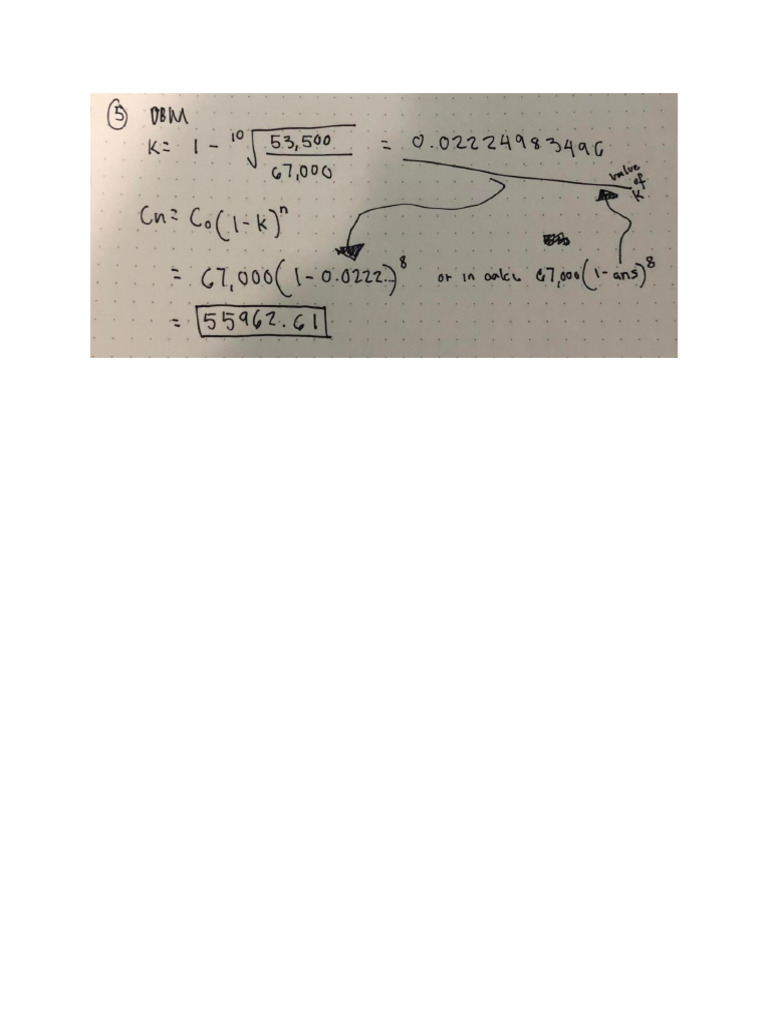 ⑤ DBM
K = 1 - ¹⁰√(53,500 / 67,000) = 0.02224983496
value of K
Cn = C₀(1-k)ⁿ
= 67,000(1-0.0222..)⁸ or in calcu 67,000(1-ans)⁸
= 55962.61